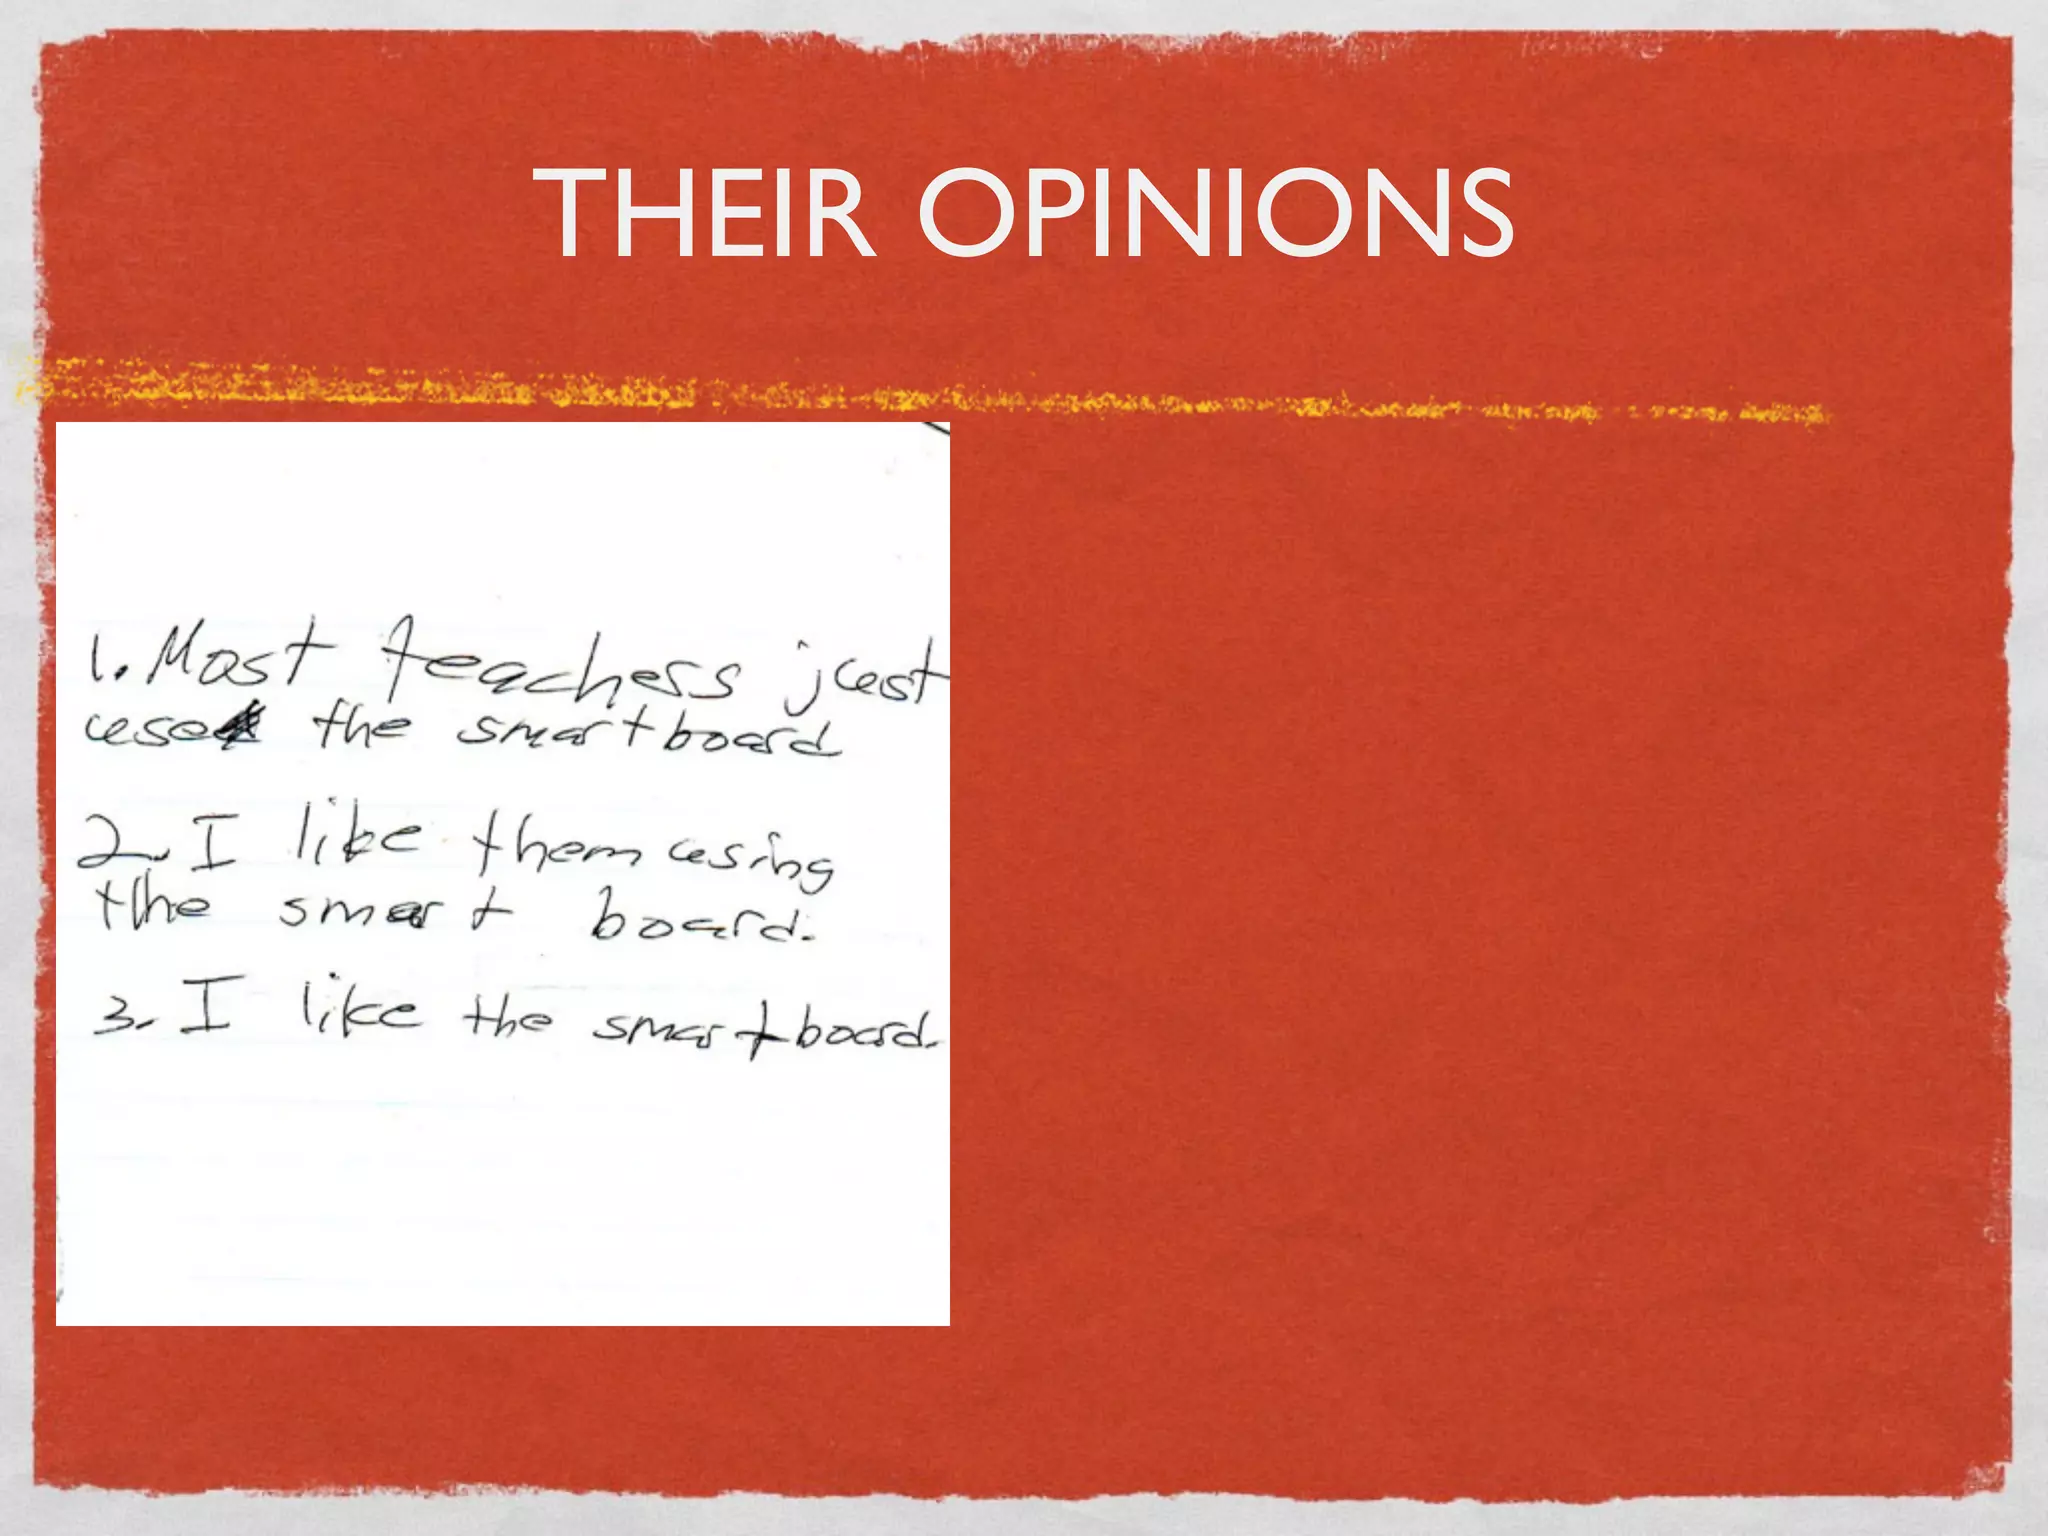 THEIR OPINIONS
1. Most teachers just
use the smartboard
2. I like them using
the smart board.
3. I like the smartboard.